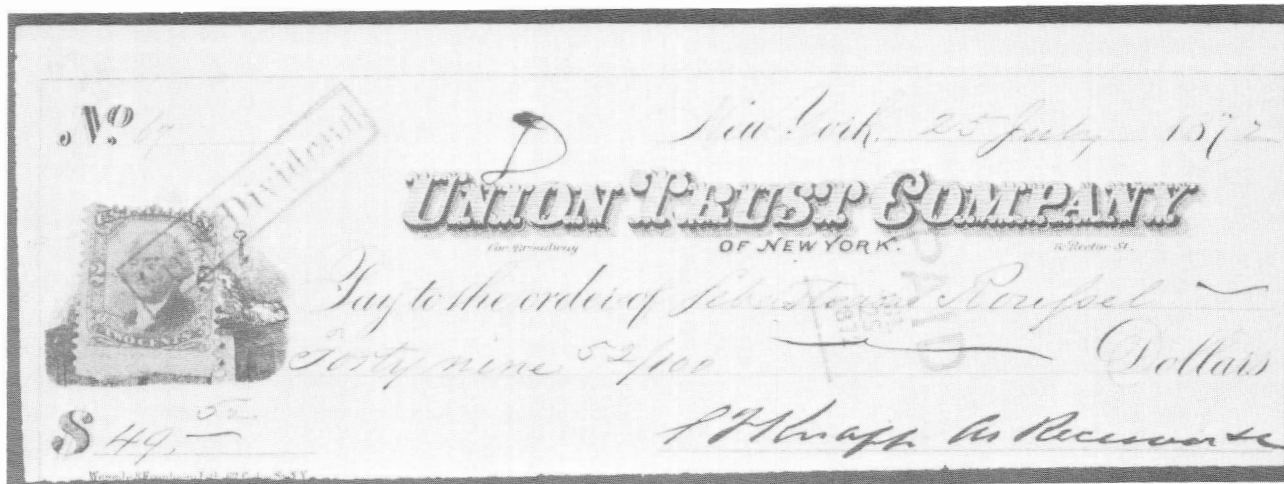 No. 67
Dividend
New York, 25 July 1872
UNION TRUST COMPANY
Cor. Broadway OF NEW YORK. & Rector St.
PAID
Pay to the order of Roussel
Forty nine 52/100 Dollars
TWO CENTS
$ 49,52
Knapp As Receiver &c